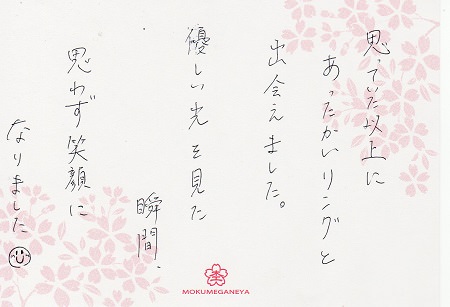 思っていた以上に
あったかいリングと
出会えました。
優しい光を見た
瞬間、
思わず笑顔に
なりました
MOKUMEGANEYA